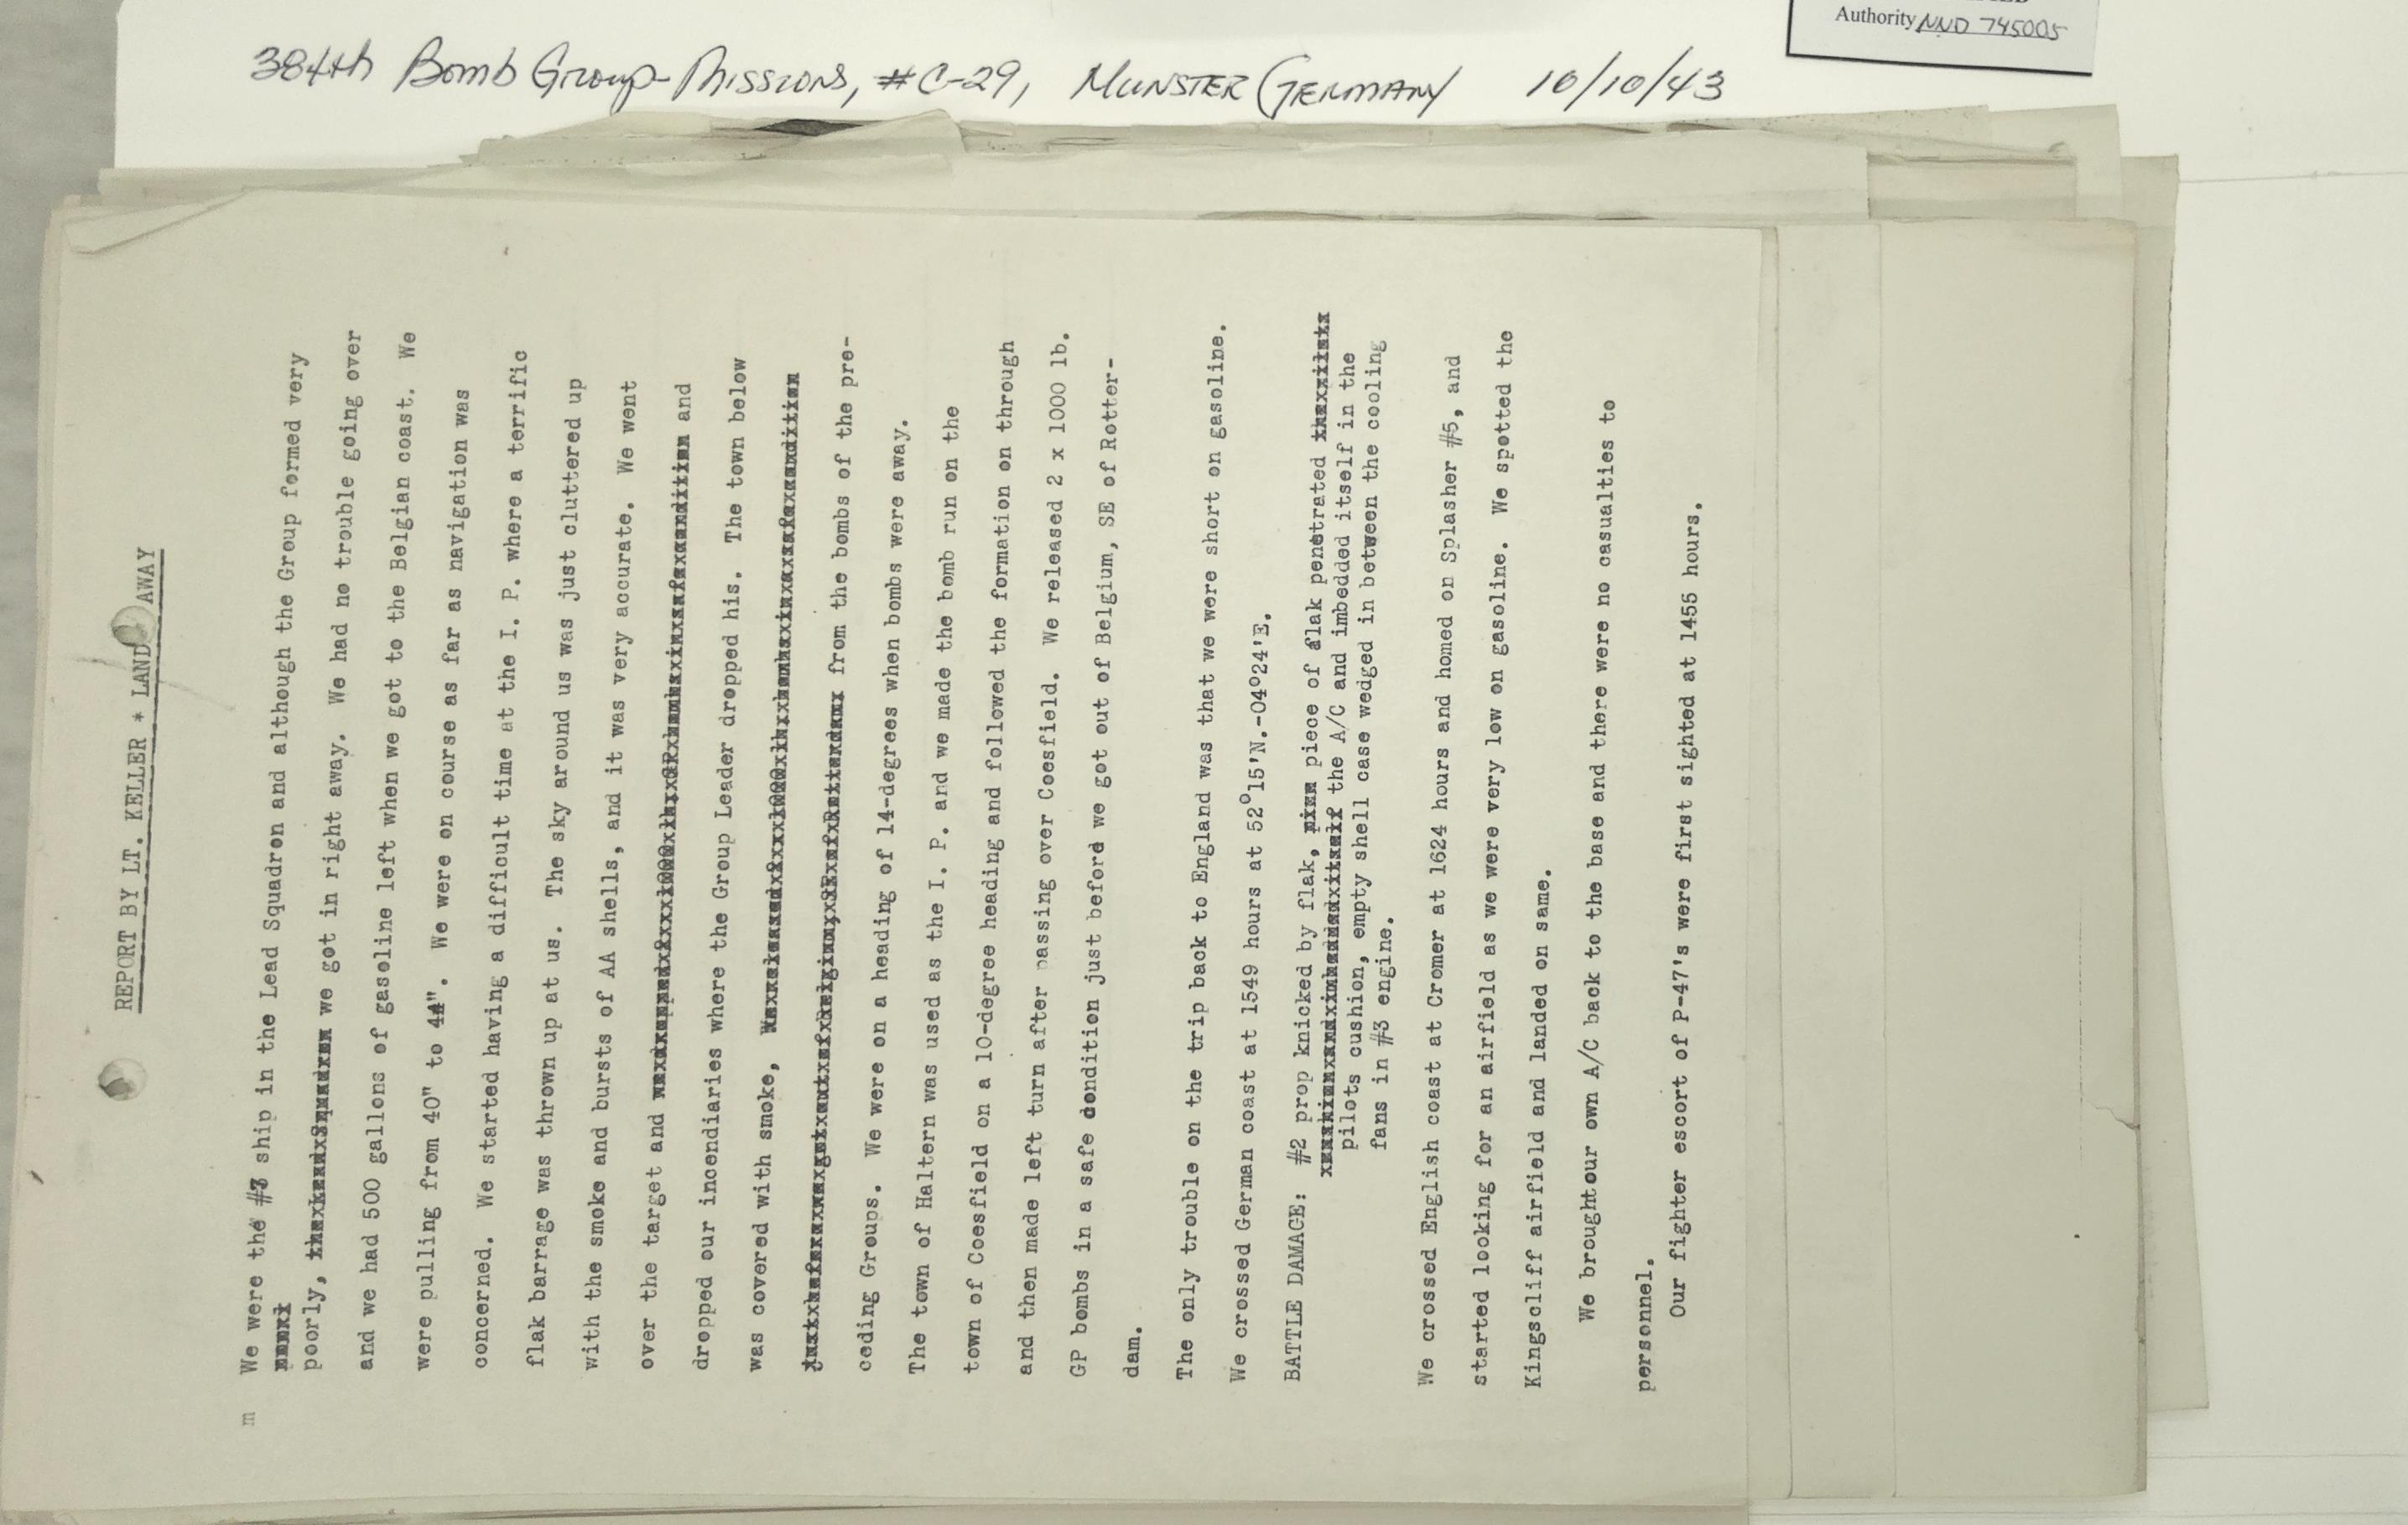 Authority NND 745005
384th Bomb Group-Missions, #C-29, MUNSTER (GERMANY) 10/10/43
REPORT BY LT. KELLER * LAND AWAY
m We were the #3 ship in the Lead Squadron and although the Group formed very
poorly, we got in right away. We had no trouble going over
and we had 500 gallons of gasoline left when we got to the Belgian coast. We
were pulling from 40" to 44". We were on course as far as navigation was
concerned. We started having a difficult time at the I. P. where a terrific
flak barrage was thrown up at us. The sky around us was just cluttered up
with the smoke and bursts of AA shells, and it was very accurate. We went
over the target and and
dropped our incendiaries where the Group Leader dropped his. The town below
was covered with smoke,
from the bombs of the pre-
ceding Groups. We were on a heading of 14-degrees when bombs were away.
The town of Haltern was used as the I. P. and we made the bomb run on the
town of Coesfield on a 10-degree heading and followed the formation on through
and then made left turn after passing over Coesfield. We released 2 x 1000 lb.
GP bombs in a safe condition just before we got out of Belgium, SE of Rotter-
dam.
The only trouble on the trip back to England was that we were short on gasoline.
We crossed German coast at 1549 hours at 52°15'N.-04°24'E.
BATTLE DAMAGE: #2 prop knicked by flak, piece of flak penetrated
the A/C and imbedded itself in the
pilots cushion, empty shell case wedged in between the cooling
fans in #3 engine.
We crossed English coast at Cromer at 1624 hours and homed on Splasher #5, and
started looking for an airfield as we were very low on gasoline. We spotted the
Kingscliff airfield and landed on same.
We brought our own A/C back to the base and there were no casualties to
personnel.
Our fighter escort of P-47's were first sighted at 1455 hours.